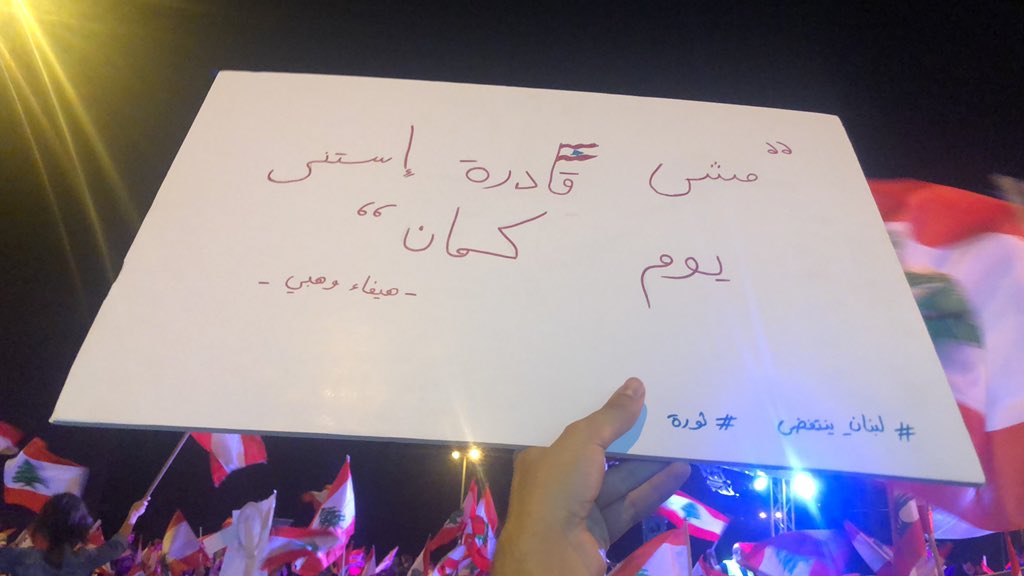 "مش قادرة إستنى
يوم كمان"
- هيفاء وهبي -
#لبنان_ينتفض #ثورة